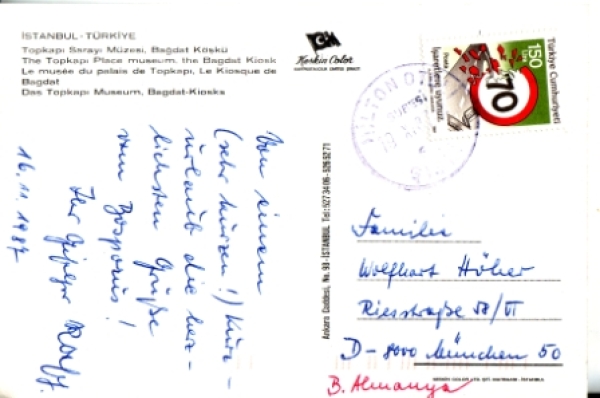 İSTANBUL - TÜRKİYE
Topkapı Sarayı Müzesi, Bağdat Köşkü
The Topkapı Place museum, the Bagdat Kiosk
Le musée du palais de Topkapı, Le Kiosque de
Bagdat
Das Topkapı Museum, Bagdat-Kiosks
Keskin Color
Türkiye Cumhuriyeti
150
LİRA
70
işaretlere uyunuz.
HILTON
Ankara Caddesi, No. 93 - İSTANBUL Tel:
Von einem
(sehr kurzen!) Kurz-
urlaub die herz-
lichsten Grüße
vom Bosporus!
Ihr
16.11.1987
Familie
Wolfhart Höher
Riesstraße 58/VI
D-8000 München 50
B. Almanya